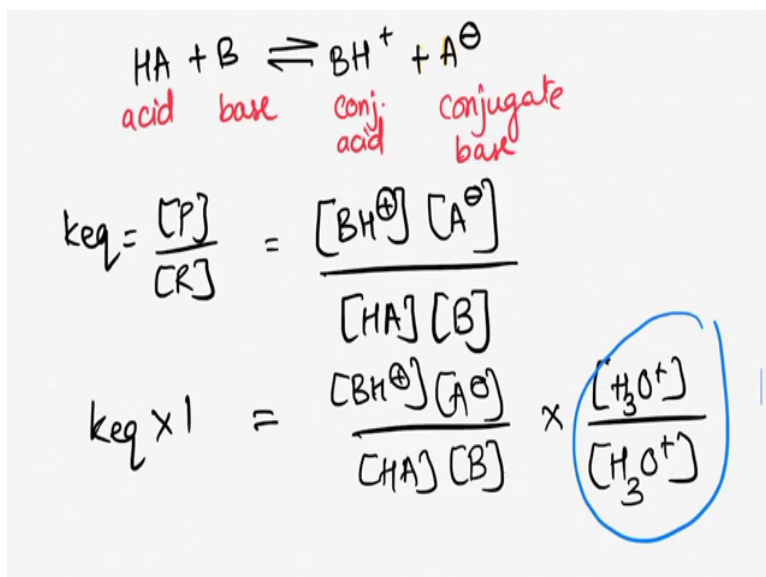 HA + B ⇌ BH⁺ + A⊖
acid base conj. acid conjugate base
keq = [P] / [R] = [BH⊕] [A⊖] / [HA] [B]
keq × 1 = [BH⊕] [A⊖] / [HA] [B] × [H₃O⁺] / [H₃O⁺]